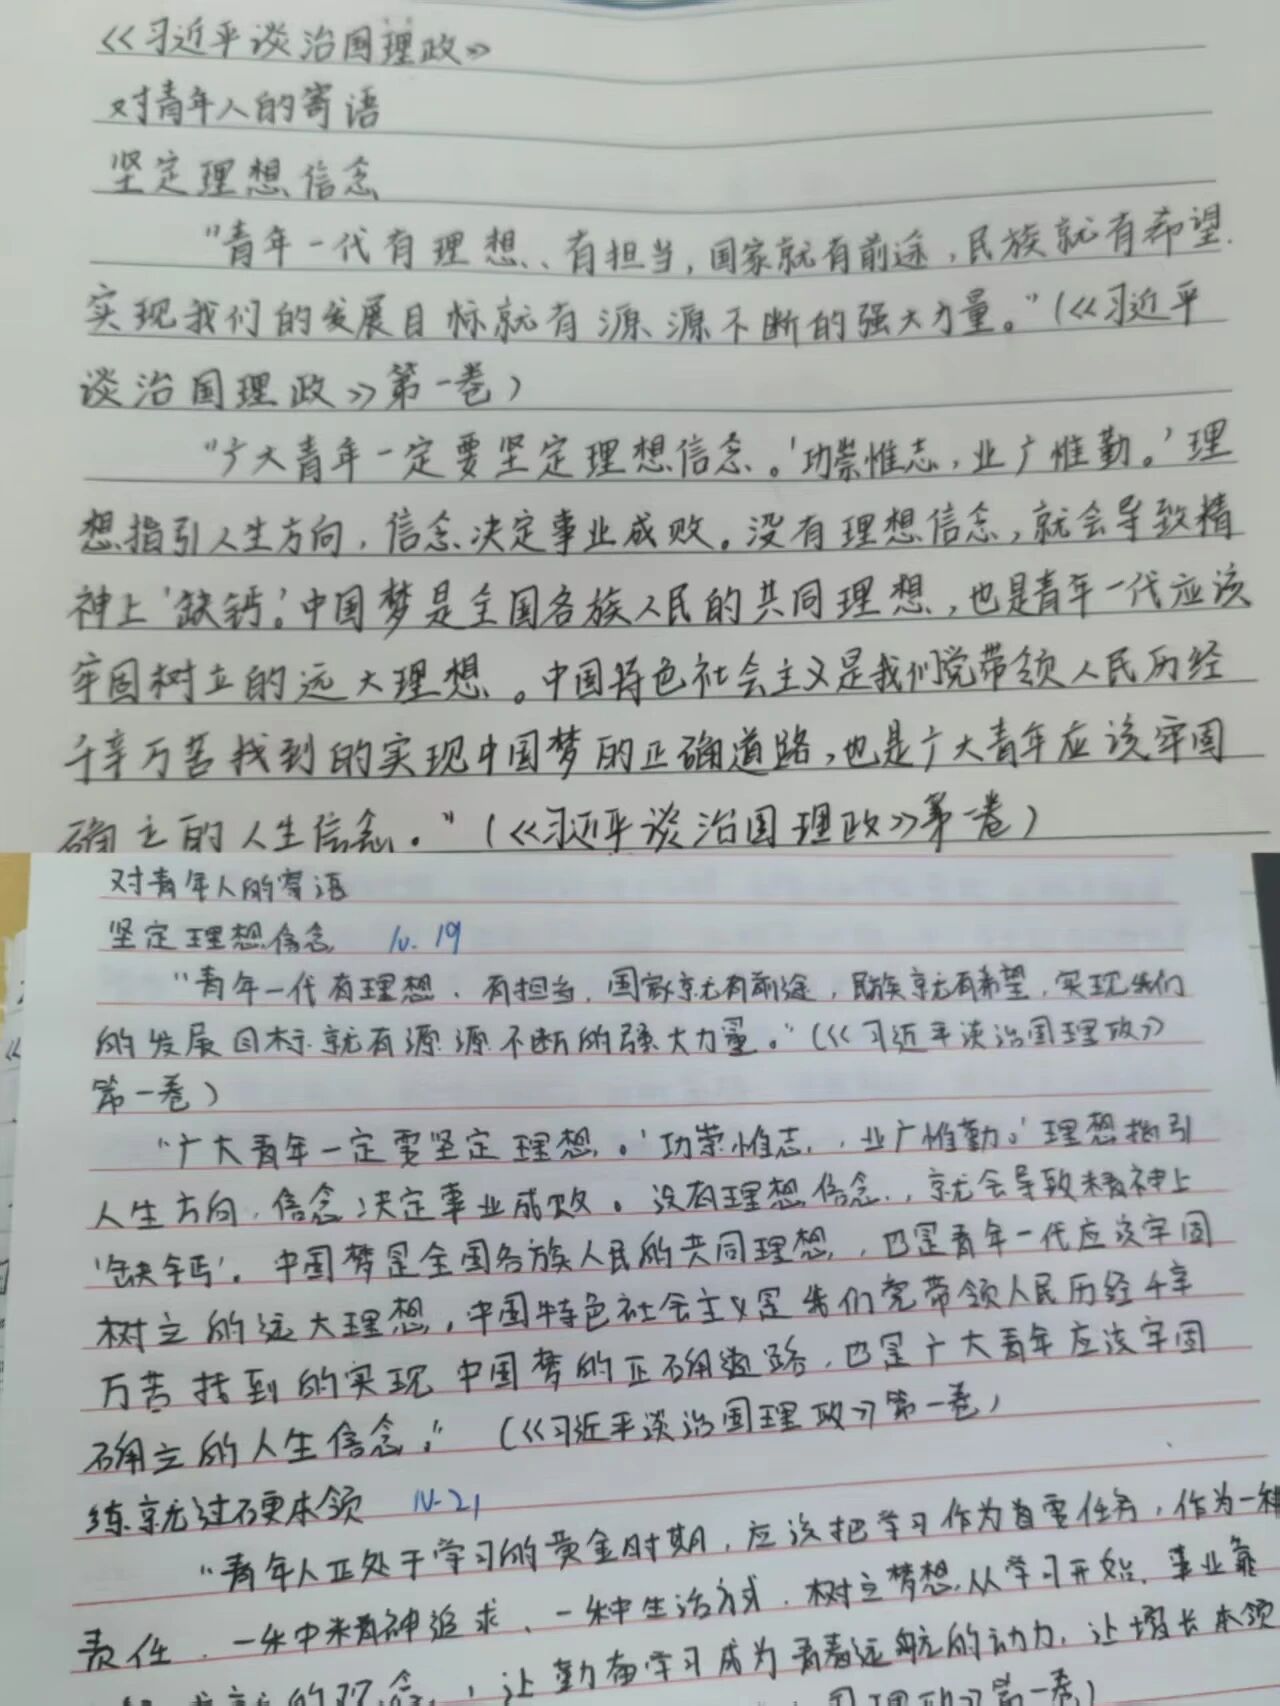 《习近平谈治国理政》
对青年人的寄语
坚定理想信念
"青年一代有理想、有担当,国家就有前途,民族就有希望.
实现我们的发展目标就有源源不断的强大力量。"(《习近平
谈治国理政》第一卷)
"广大青年一定要坚定理想信念。'功崇惟志,业广惟勤。'理
想指引人生方向,信念决定事业成败。没有理想信念,就会导致精
神上'缺钙'。中国梦是全国各族人民的共同理想,也是青年一代应该
牢固树立的远大理想。中国特色社会主义是我们党带领人民历经
千辛万苦找到的实现中国梦的正确道路,也是广大青年应该牢固
确立的人生信念。"(《习近平谈治国理政》第一卷)
对青年人的寄语
坚定理想信念 10.19
"青年一代有理想、有担当,国家就有前途,民族就有希望,实现我们
的发展目标就有源源不断的强大力量。"(《习近平谈治国理政》
第一卷)
"广大青年一定要坚定理想。'功崇惟志,业广惟勤。'理想指引
人生方向,信念决定事业成败。没有理想信念,就会导致精神上
'缺钙'。中国梦是全国各族人民的共同理想,也是青年一代应该牢固
树立的远大理想,中国特色社会主义是我们党带领人民历经千辛
万苦找到的实现中国梦的正确道路,也是广大青年应该牢固
确立的人生信念。"(《习近平谈治国理政》第一卷)
练就过硬本领 10.21
"青年人正处于学习的黄金时期,应该把学习作为首要任务,作为一种
责任、一种精神追求、一种生活方式,树立梦想从学习开始、事业靠
的观念,让勤奋学习成为青春远航的动力,让增长本领
国理政》第一卷)